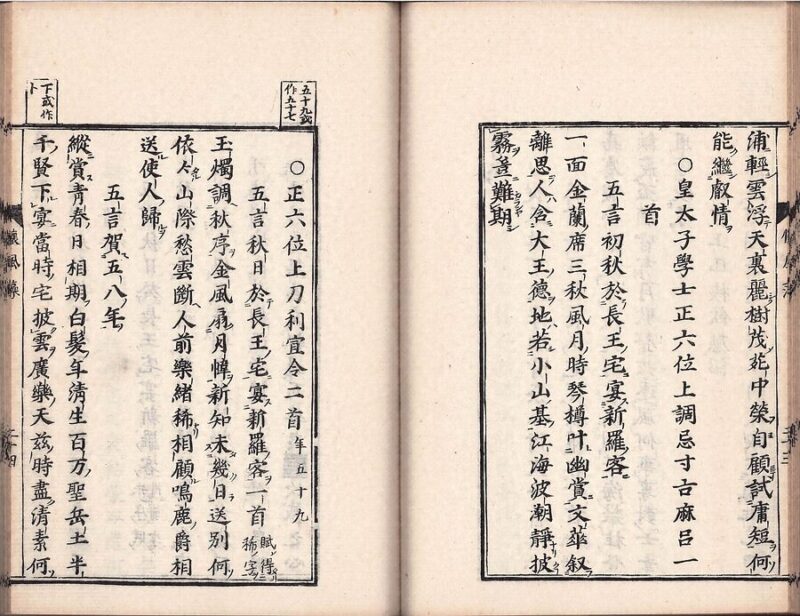 浦輕雲浮天裏麗樹茂苑中榮自顧試庸短何
能繼叡情
○皇太子學士正六位上調忌寸古麻呂一
首
五言初秋於長王宅宴新羅客
一面金蘭席三秋風月時琴樽叶幽賞文華叙
離思人含大王德地若小山基江海波潮靜披
霧豈難期
五十九或
作五十七
○正六位上刀利宣令二首年五十九
五言秋日於長王宅宴新羅客一首賦得稀字
玉燭調秋序金風扇月幃新知未幾日送別何
依々山際愁雲斷人前樂緒稀相顧鳴鹿爵相
送使人歸
五言賀五八年
縱賞青春日相期白髮年清生百万聖岳土半
千賢下宴當時宅披雲廣樂天茲時盡清素何
下或作
卜
懷風藻